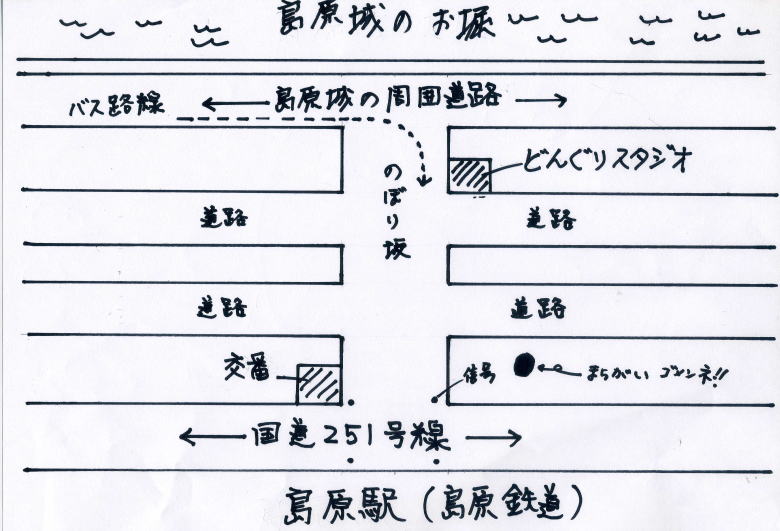 島原城のお堀
バス路線
島原城の周囲道路
のぼり坂
どんぐりスタジオ
道路
道路
道路
道路
交番
信号
まちがい ゴメンネ!!
国道251号線
島原駅(島原鉄道)